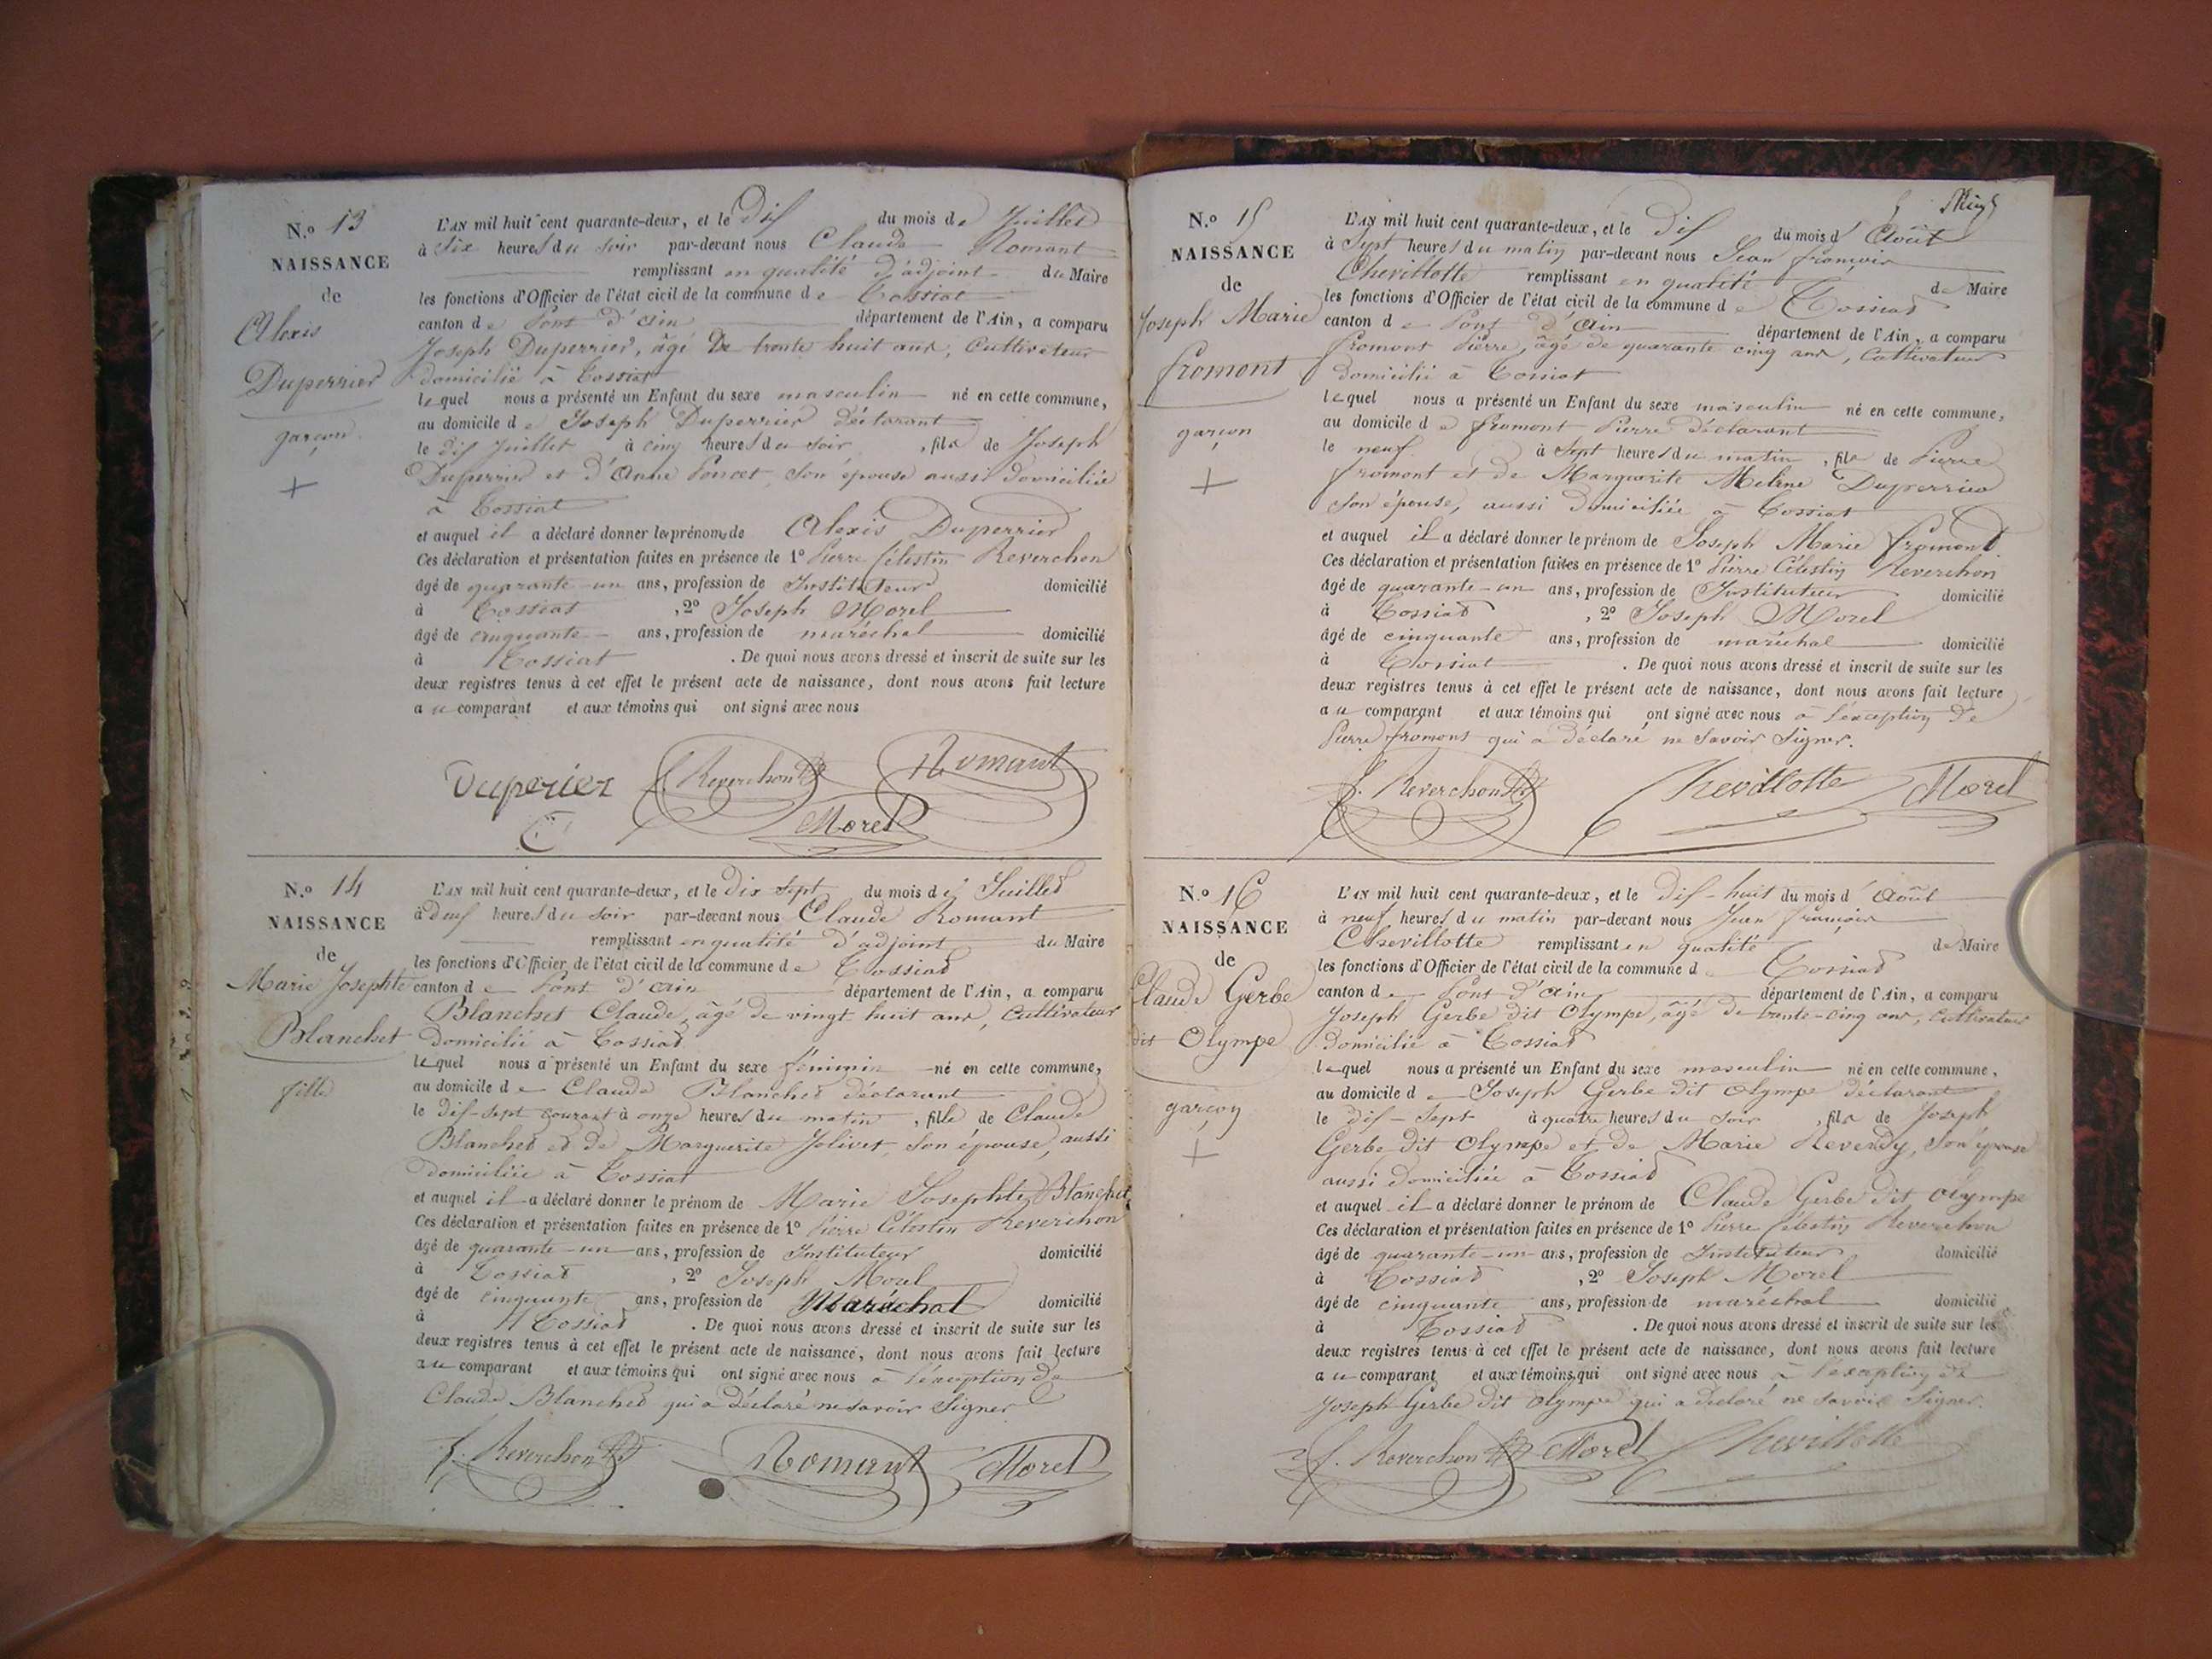 N.° 13
NAISSANCE
de
Alexis
Duperrier
garçon
+
L'AN mil huit cent quarante-deux, et le Dix du mois de Juillet
à Six heures du Soir par-devant nous Claude Romant
remplissant en qualité d'adjoint du Maire
les fonctions d'Officier de l'état civil de la commune de Tossiat
canton de Pont d'ain département de l'Ain, a comparu
Joseph Duperrier, âgé de trente huit ans, Cultivateur
domicilié à Tossiat
lequel nous a présenté un Enfant du sexe masculin né en cette commune,
au domicile de Joseph Duperrier déclarant
le dix Juillet à cinq heures du soir, fils de Joseph
Duperrier et d'Anne Poncet, Son épouse aussi domiciliée
à Tossiat
et auquel il a déclaré donner les prénoms de Alexis Duperrier
Ces déclaration et présentation faites en présence de 1° Pierre Célestin Reverchon
âgé de quarante-un ans, profession de Instituteur domicilié
à Tossiat, 2° Joseph Morel
âgé de cinquante ans, profession de maréchal domicilié
à Tossiat. De quoi nous avons dressé et inscrit de suite sur les
deux registres tenus à cet effet le présent acte de naissance, dont nous avons fait lecture
au comparant et aux témoins qui ont signé avec nous
Duperier Reverchon Romant
Morel
N.° 14
NAISSANCE
de
Marie Josephte
Blanchet
fille
L'AN mil huit cent quarante-deux, et le Dix Sept du mois de Juillet
à Deux heures du Soir par-devant nous Claude Romant
remplissant en qualité d'adjoint du Maire
les fonctions d'Officier de l'état civil de la commune de Tossiat
canton de Pont d'ain département de l'Ain, a comparu
Blanchet Claude, âgé de vingt huit ans, Cultivateur
Domicilié à Tossiat
lequel nous a présenté un Enfant du sexe féminin né en cette commune,
au domicile de Claude Blanchet déclarant
le Dix-sept courant à onze heures du matin, fille de Claude
Blanchet et de Marguerite Jolivet, Son épouse, aussi
domiciliée à Tossiat
et auquel il a déclaré donner le prénom de Marie Josephte Blanchet
Ces déclaration et présentation faites en présence de 1° Pierre Célestin Reverchon
âgé de quarante-un ans, profession de Instituteur domicilié
à Tossiat, 2° Joseph Morel
âgé de cinquante ans, profession de Maréchal domicilié
à Tossiat. De quoi nous avons dressé et inscrit de suite sur les
deux registres tenus à cet effet le présent acte de naissance, dont nous avons fait lecture
au comparant et aux témoins qui ont signé avec nous à l'exception de
Claude Blanchet qui a déclaré ne savoir Signer
Reverchon Romant Morel
N.° 15
NAISSANCE
de
Joseph Marie
fromont
garçon
+
L'AN mil huit cent quarante-deux, et le Dix du mois d'Août
à Sept heures du matin par-devant nous Jean françois
Chevillotte remplissant en qualité de Maire
les fonctions d'Officier de l'état civil de la commune de Tossiat
canton de Pont d'Ain département de l'Ain, a comparu
fromont Pierre, âgé de quarante cinq ans, Cultivateur
Domicilié à Tossiat
lequel nous a présenté un Enfant du sexe masculin né en cette commune,
au domicile de fromont Pierre déclarant
le neuf à Sept heures du matin, fils de Pierre
fromont et de Marguerite Melene Duperrier
Son épouse, aussi Domiciliée à Tossiat
et auquel il a déclaré donner le prénom de Joseph Marie fromont
Ces déclaration et présentation faites en présence de 1° Pierre Célestin Reverchon
âgé de quarante-un ans, profession de Instituteur domicilié
à Tossiat, 2° Joseph Morel
âgé de cinquante ans, profession de maréchal domicilié
à Tossiat. De quoi nous avons dressé et inscrit de suite sur les
deux registres tenus à cet effet le présent acte de naissance, dont nous avons fait lecture
au comparant et aux témoins qui ont signé avec nous à l'exception de
Pierre fromont qui a déclaré ne Savoir Signer.
Reverchon Chevillotte Morel
N.° 16
NAISSANCE
de
Claude Gerbe
dit Olympe
garçon
+
L'AN mil huit cent quarante-deux, et le Dix-huit du mois d'Août
à neuf heures du matin par-devant nous Jean françois
Chevillotte remplissant en qualité de Maire
les fonctions d'Officier de l'état civil de la commune de Tossiat
canton de Pont d'ain département de l'Ain, a comparu
Joseph Gerbe dit Olympe, âgé de trente-cinq ans, Cultivateur
Domicilié à Tossiat
lequel nous a présenté un Enfant du sexe masculin né en cette commune,
au domicile de Joseph Gerbe dit Olympe déclarant
le dix-Sept à quatre heures du Soir, fils de Joseph
Gerbe dit Olympe et de Marie Son épouse
aussi Domiciliée à Tossiat
et auquel il a déclaré donner le prénom de Claude Gerbe dit Olympe
Ces déclaration et présentation faites en présence de 1° Pierre Célestin Reverchon
âgé de quarante-un ans, profession de Instituteur domicilié
à Tossiat, 2° Joseph Morel
âgé de cinquante ans, profession de maréchal domicilié
à Tossiat. De quoi nous avons dressé et inscrit de suite sur les
deux registres tenus à cet effet le présent acte de naissance, dont nous avons fait lecture
au comparant et aux témoins qui ont signé avec nous à l'exception de
Joseph Gerbe dit Olympe qui a déclaré ne savoir Signer.
Reverchon Morel Chevillotte